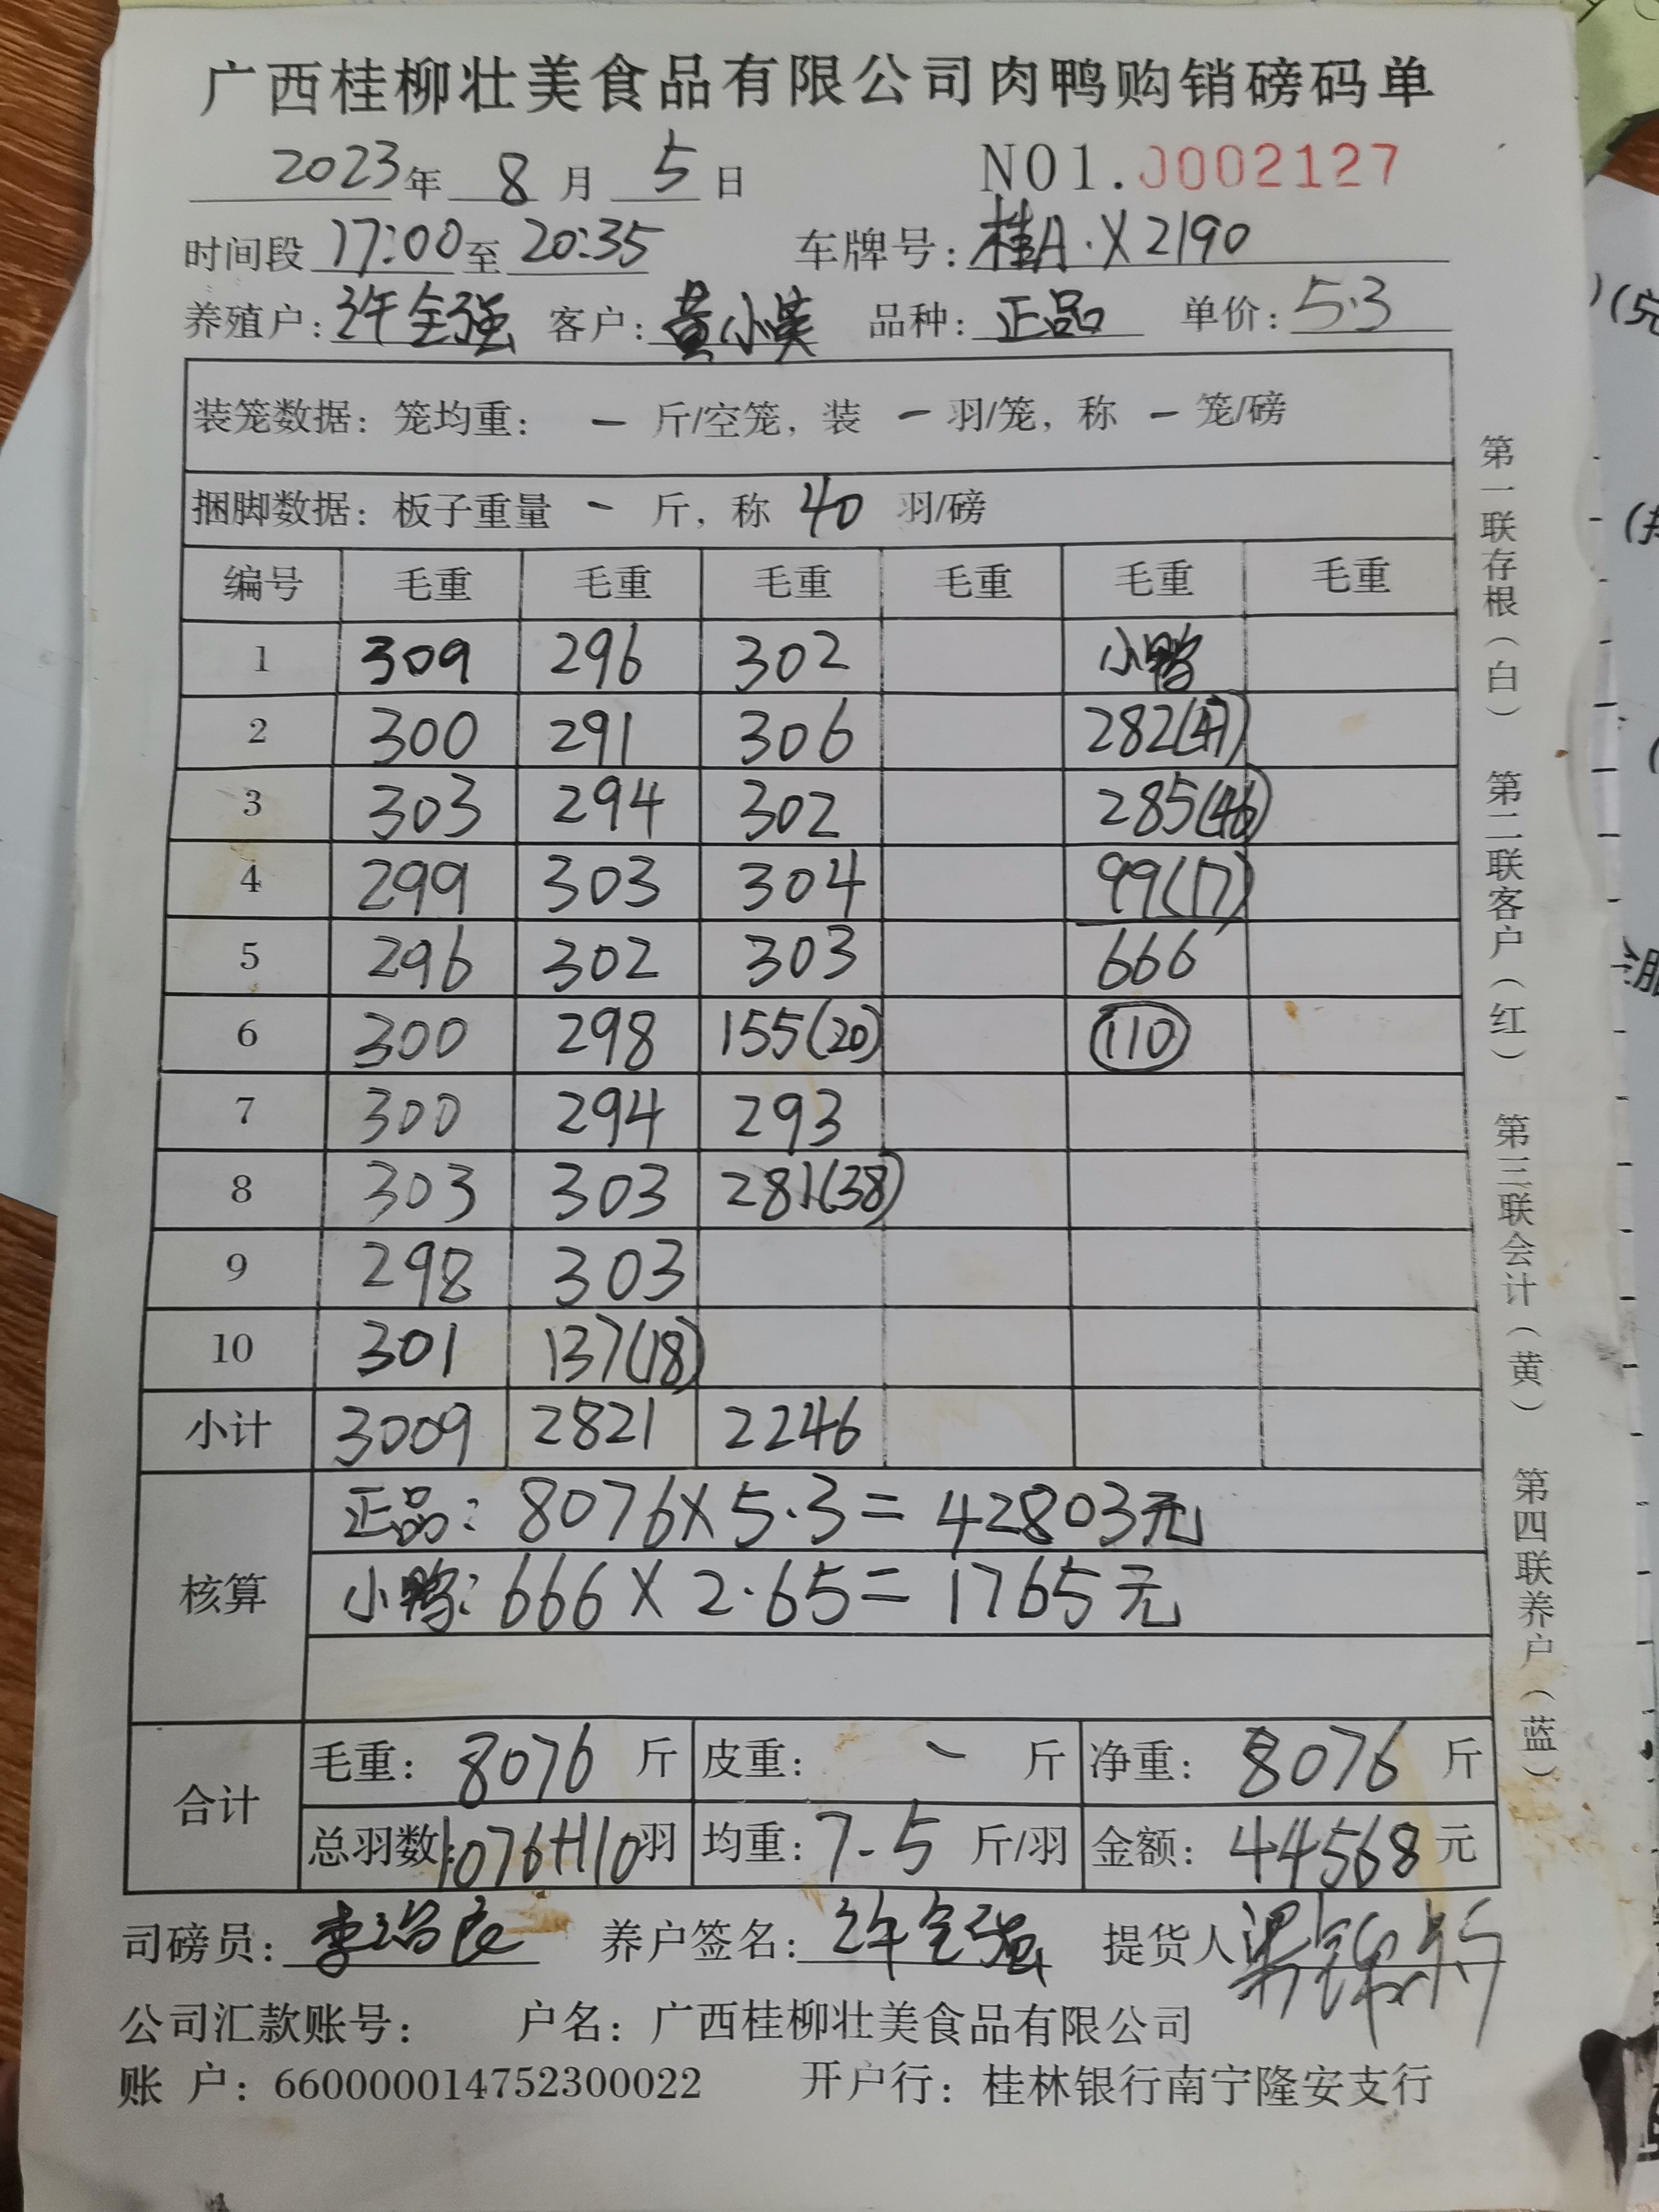 广西桂柳壮美食品有限公司肉鸭购销磅码单
2023年 8 月 5 日 NO1.0002127
时间段 17:00 至 20:35 车牌号: 桂A·X2190
养殖户: 许全强 客户: 黄小英 品种: 正品 单价: 5.3
装笼数据: 笼均重: 一 斤/空笼, 装 一 羽/笼, 称 一 笼/磅
捆脚数据: 板子重量 一 斤, 称 40 羽/磅
编号 毛重 毛重 毛重 毛重 毛重 毛重
1 309 296 302 小鸭
2 300 291 306 282(47)
3 303 294 302 285(46)
4 299 303 304 99(17)
5 296 302 303 666
6 300 298 155(20) 110
7 300 294 293
8 303 303 281(38)
9 298 303
10 301 137(18)
小计 3009 2821 2246
核算
正品: 8076×5.3=42803元
小鸭: 666×2.65=1765元
合计
毛重: 8076 斤 皮重: 一 斤 净重: 8076 斤
总羽数: 1076+110羽 均重: 7.5 斤/羽 金额: 44568元
司磅员: 养户签名: 许全强 提货人
公司汇款账号: 户名: 广西桂柳壮美食品有限公司
账 户: 660000014752300022 开户行: 桂林银行南宁隆安支行
第一联存根(白) 第二联客户(红) 第三联会计(黄) 第四联养户(蓝)